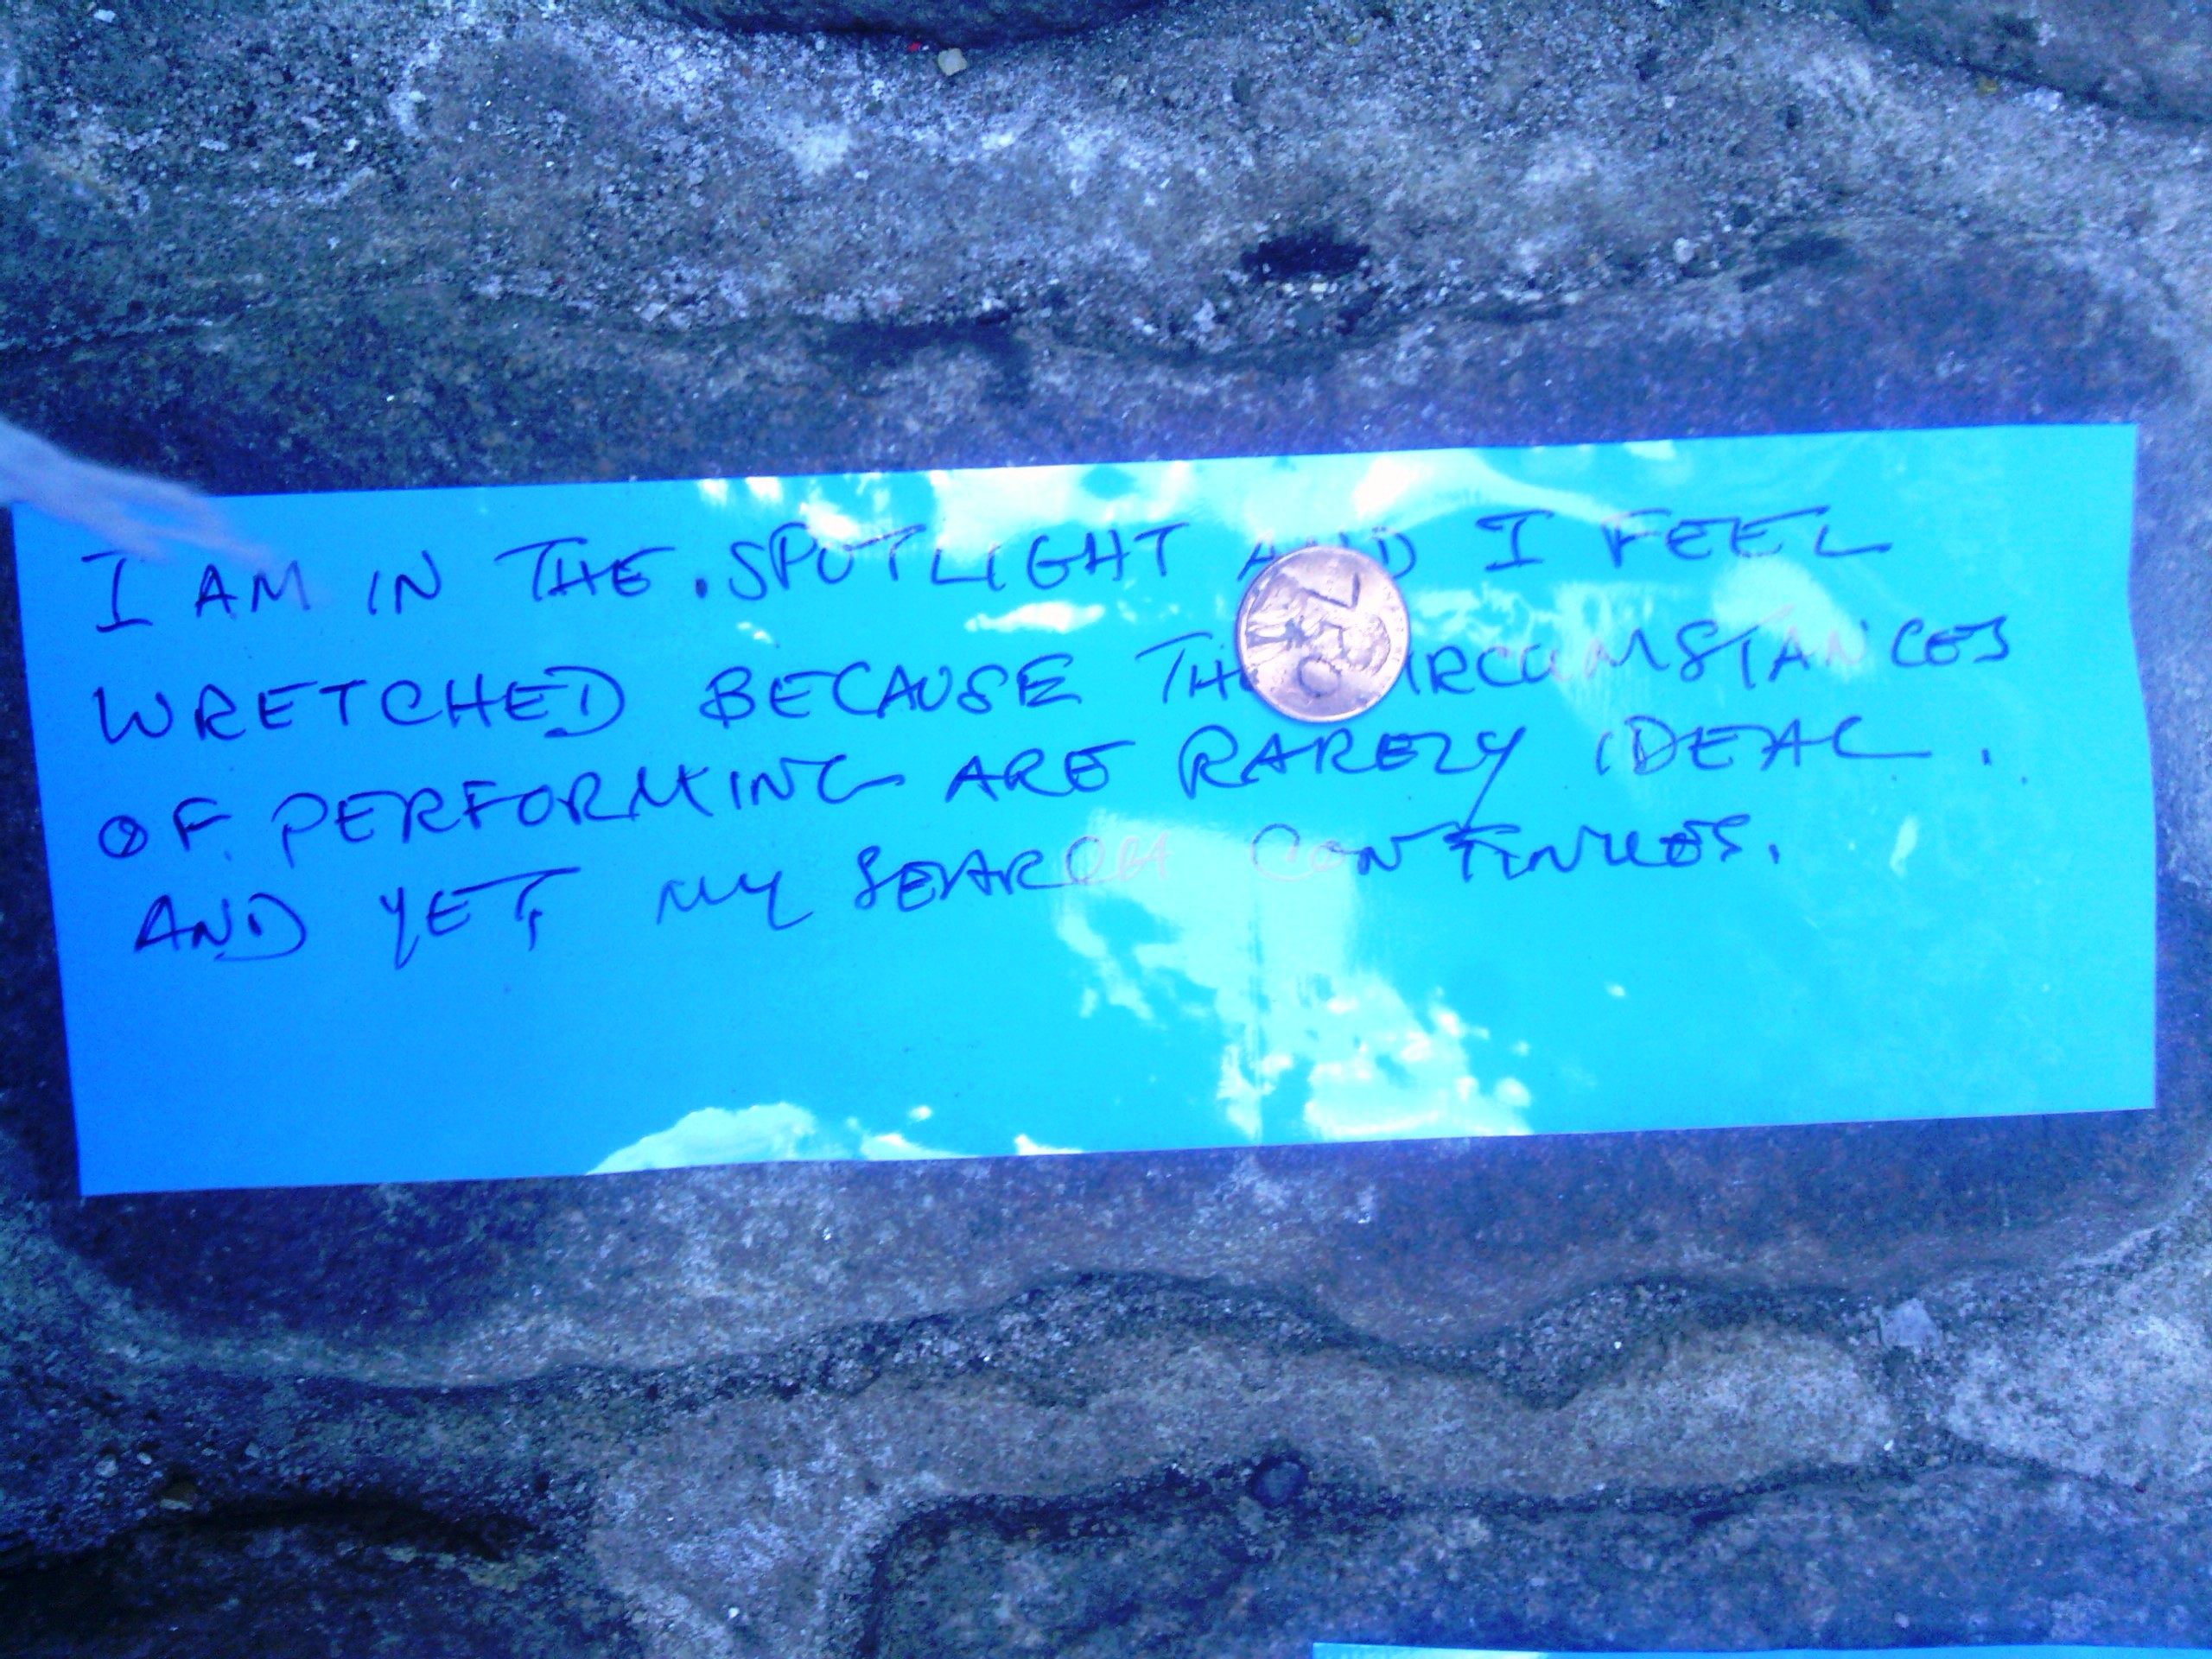 I AM IN THE .SPOTLIGHT AND I FEEL
WRETCHED BECAUSE THE CIRCUMSTANCES
OF PERFORMING ARE RARELY IDEAL.
AND YET MY SEARCH CONTINUES.